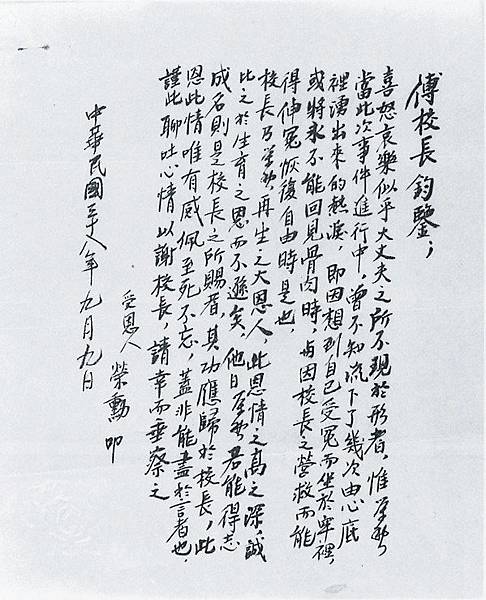 傅校長鈞鑒；
喜怒哀樂似乎大丈夫之所不現於形者，惟學弟
當此次事件進行中，曾不知流下了幾次由心底
裡湧出來的熱淚，即因想到自己受冤而坐於牢裡，
或將永不能回見骨肉時，與因校長之營救而能
得伸冤恢復自由時是也
校長乃學弟再生之大恩人，此恩情之高之深，誠
比之於生育之恩而不遜矣，他日學弟若能得志
成名則是校長之所賜者，其功應歸於校長，此
恩此情唯有感佩至死不忘，蓋非能盡於言者也，
謹此聊吐心情以謝校長，請幸而垂察之
受恩人 榮勳 叩
中華民國三十八年九月九日